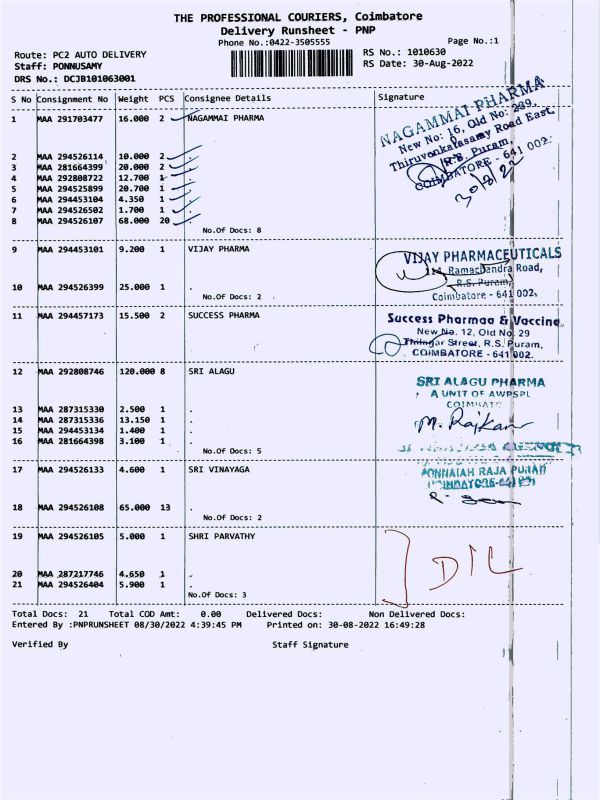 THE PROFESSIONAL COURIERS, Coimbatore
Delivery Runsheet - PNP
Phone No.:0422-3505555
Page No.:1
Route: PC2 AUTO DELIVERY
Staff: PONNUSAMY
DRS No.: DCJB101063001
RS No.: 1010630
RS Date: 30-Aug-2022
S No Consignment No Weight PCS Consignee Details Signature
1 MAA 291703477 16.000 2 NAGAMMAI PHARMA
NAGAMMAI PHARMA
New No: 16, Old No: 239,
Thiruvenkatasamy Road East,
R.S. Puram,
COIMBATORE - 641 002.
30/8/22
2 MAA 294526114 10.000 2 .
3 MAA 281664399 20.000 2 .
4 MAA 292808722 12.700 1 .
5 MAA 294525899 20.700 1 .
6 MAA 294453104 4.350 1 .
7 MAA 294526502 1.700 1 .
8 MAA 294526107 68.000 20 .
No.Of Docs: 8
9 MAA 294453101 9.200 1 VIJAY PHARMA
VIJAY PHARMACEUTICALS
Ramachandra Road,
R.S. Puram,
Coimbatore - 641 002.
10 MAA 294526399 25.000 1 .
No.Of Docs: 2
11 MAA 294457173 15.500 2 SUCCESS PHARMA
Success Pharmaa & Vaccine,
New No. 12, Old No. 29
Street, R.S. Puram,
COIMBATORE - 641 002.
.
12 MAA 292808746 120.000 8 SRI ALAGU
SRI ALAGU PHARMA
A UNIT OF AWPSPL
M. Rajkan
13 MAA 287315330 2.500 1 .
14 MAA 287315336 13.150 1 .
15 MAA 294453134 1.400 1 .
16 MAA 281664398 3.100 1 .
No.Of Docs: 5
17 MAA 294526133 4.600 1 SRI VINAYAGA
PONNAIAH RAJA PURAM
18 MAA 294526108 65.000 13 .
No.Of Docs: 2
19 MAA 294526105 5.000 1 SHRI PARVATHY
D/L
20 MAA 287217746 4.650 1 .
21 MAA 294526404 5.900 1 .
No.Of Docs: 3
Total Docs: 21 Total COD Amt: 0.00 Delivered Docs: Non Delivered Docs:
Entered By :PNPRUNSHEET 08/30/2022 4:39:45 PM Printed on: 30-08-2022 16:49:28
Verified By Staff Signature